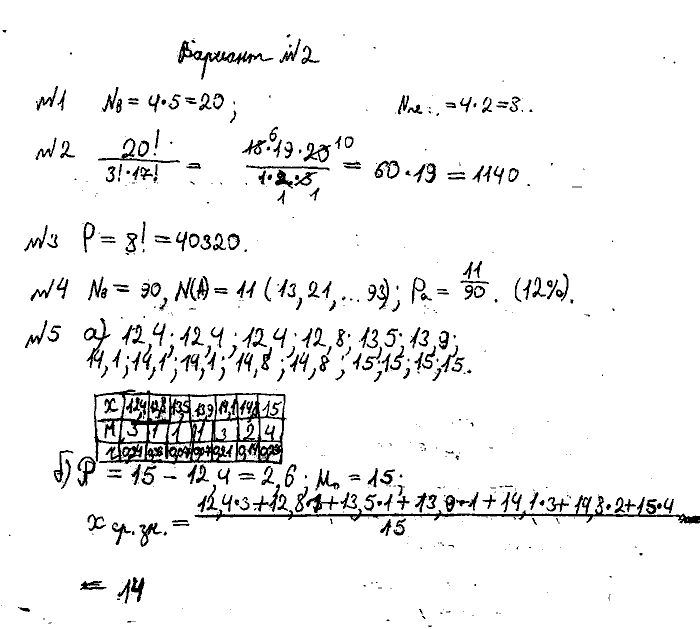 Вариант №2
№1 N₈ = 4·5=20; =4·2=8..
№2 20! / 3!·17! = 18⁶·19·20 10 / 1·2·3 1 1 = 60·19 = 1140.
№3 P = 8! = 40320.
№4 N₈ = 90, N(A) = 11 (13, 21, ... 93); Pₐ = 11/90. (12%).
№5 а) 12,4; 12,4; 12,4; 12,8; 13,5; 13,9;
14,1; 14,1; 14,1; 14,8; 14,8; 15; 15; 15; 15.
X 12,4 12,8 13,5 13,9 14,1 14,8 15
М 3 1 1 1 3 2 4
б) P = 15 - 12,4 = 2,6; M₀ = 15;
x ср. зн. = 12,4·3+12,8·1+13,5·1+13,9·1+14,1·3+14,8·2+15·4 / 15 =
= 14